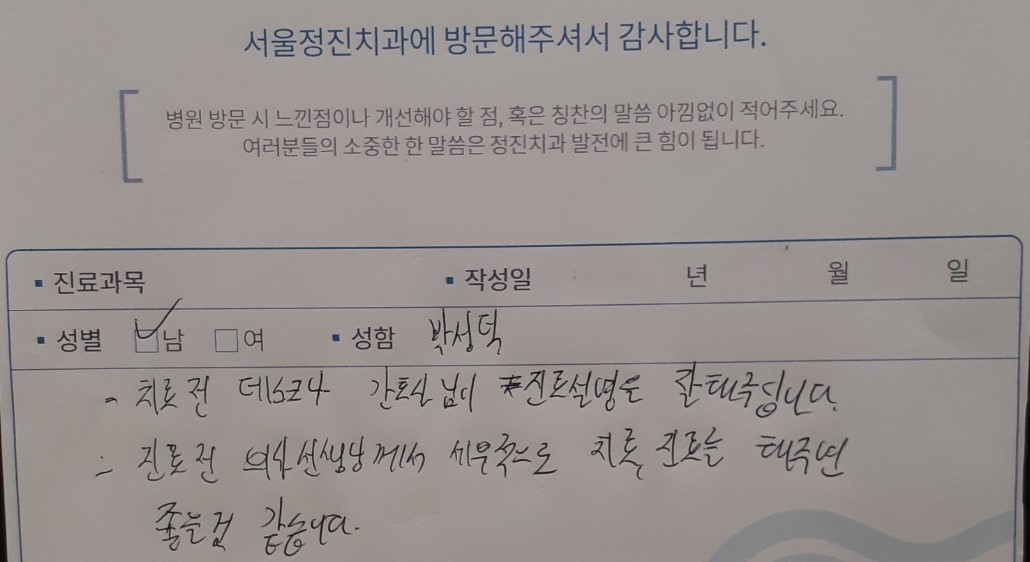 서울정진치과에 방문해주셔서 감사합니다.
병원 방문 시 느낀점이나 개선해야 할 점, 혹은 칭찬의 말씀 아낌없이 적어주세요.
여러분들의 소중한 한 말씀은 정진치과 발전에 큰 힘이 됩니다.
▪ 진료과목 ▪ 작성일 년 월 일
▪ 성별 ☑남 □여 ▪ 성함 박성덕
- 치료전 데스크나 간호사님이 진료설명은 잘해주십니다.
- 진료전 의사선생님께서 세부적으로 치료, 진료를 해주면
좋을것 같습니다.